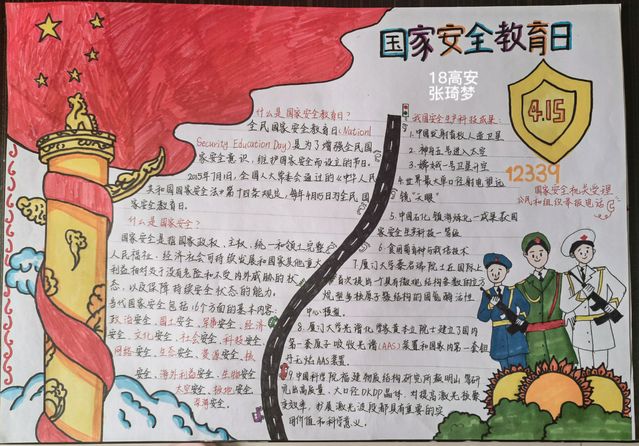 国家安全教育日
18高安
张琦梦
4.15
12339
国家安全机关受理
公民和组织举报电话
什么是国家安全教育日?
全民国家安全教育日(National
Security Education Day)是为了增强全民国
家安全意识,维护国家安全而设立的节日。
2015年7月1日,全国人大常委会通过的《中华人民
共和国国家安全法》第十四条规定,每年4月15日为全民国
家安全教育日。
什么是国家安全?
国家安全是指国家政权、主权、统一和领土完整
人民福祉、经济社会可持续发展和国家其他重大
利益相对处于没有危险和不受内外威胁的状
态,以及保障持续安全状态的能力,
当代国家安全包括16个方面的基本内容:
政治安全、国土安全、军事安全、经济
安全、文化安全、社会安全、科技安全、
网络安全、生态安全、资源安全、核
安全、海外利益安全、生物安全
太空安全、极地安全、
深海安全
我国安全生产科技成果:
1.中国发射首枚人造卫星
2.神舟五号进入太空
3.嫦娥一号卫星升空
4.世界最大单口径射电望远
镜"天眼"
5.中国石化镇海炼化一成果获国
家安全生产科技一等级
6.食用菌育种与栽培技术
7.厦门大学
首次
中心
8.厦门大学
第一套原子吸收光谱(AAS)装置和国家内第一套钽
舟无焰AAS装置
9.中国科学院福建物质结构研究所
出高质量、大口径DKDP晶体,对提高激光核聚
变效率,扩展激光波段都具有重要的实
用价值和科学意义。